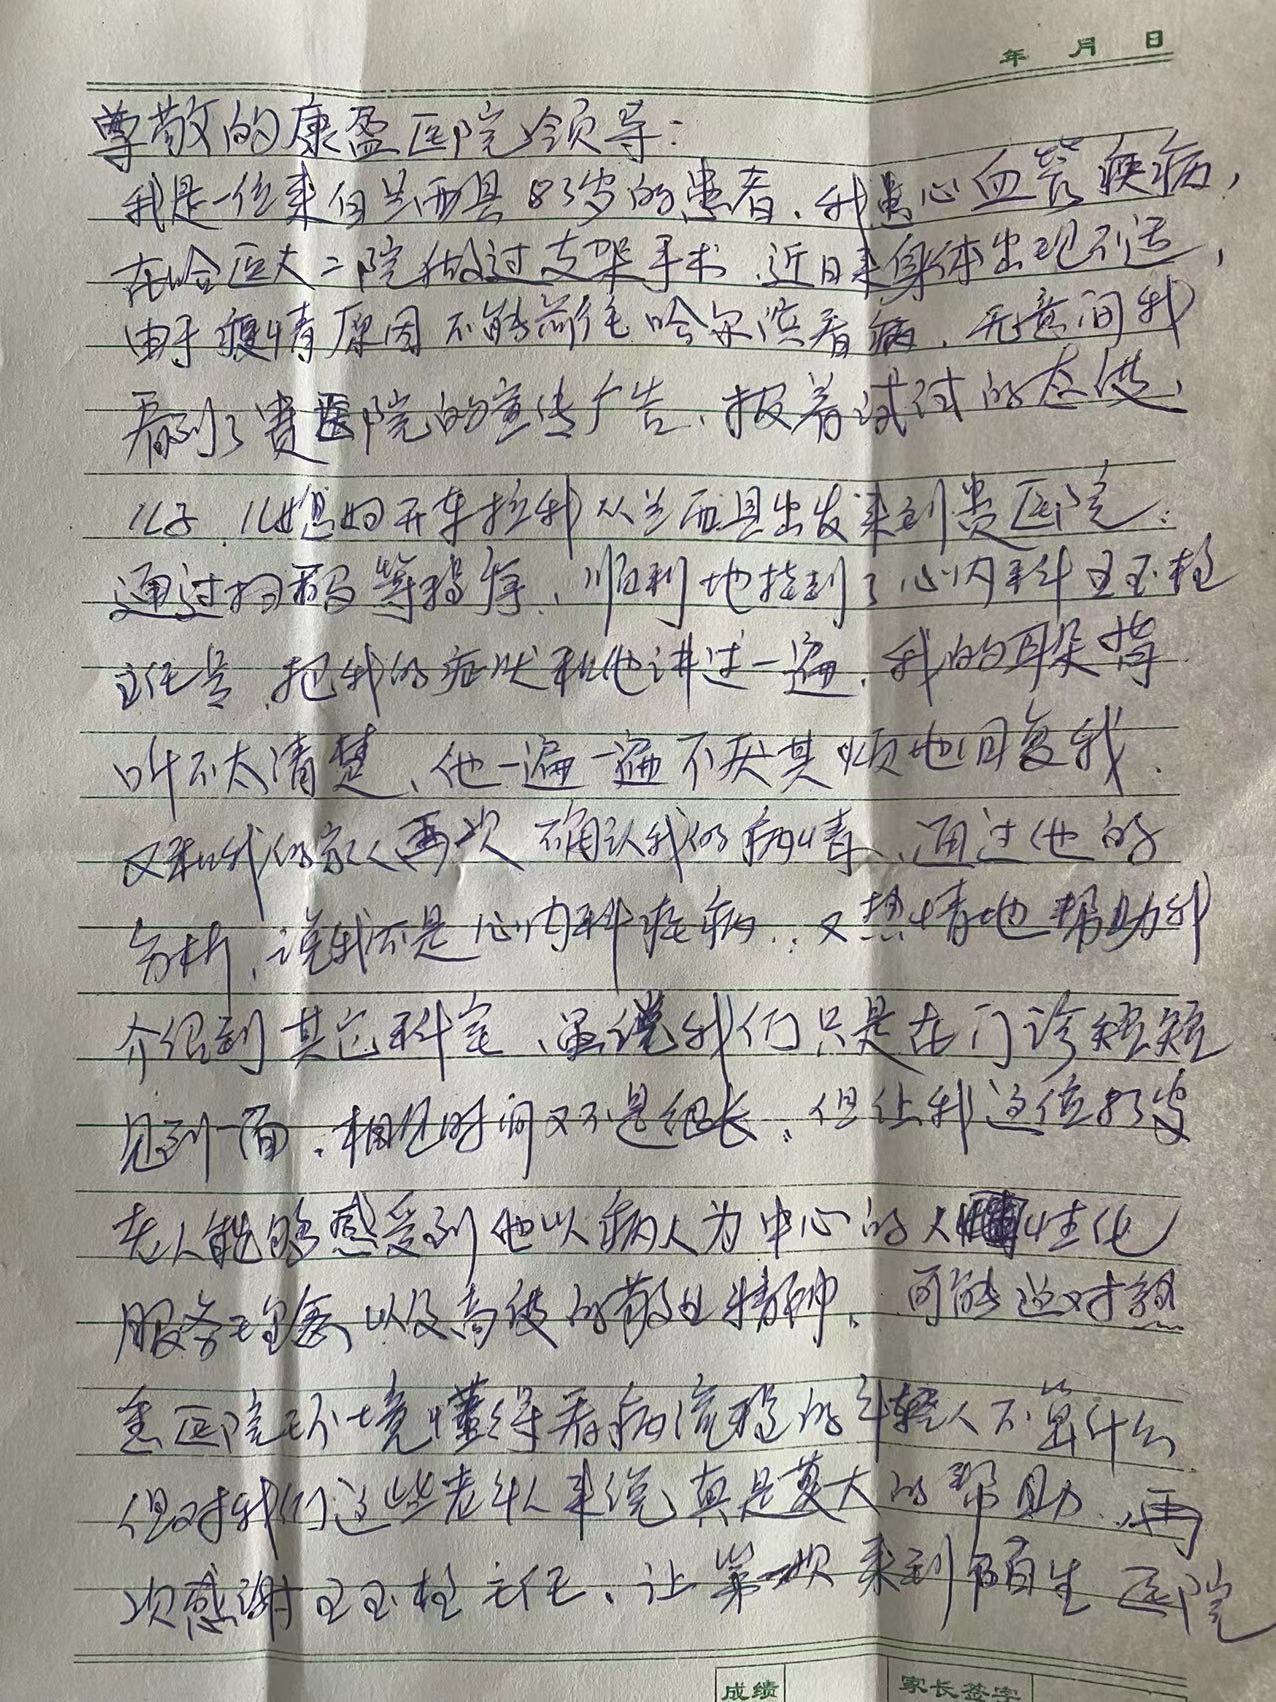 年 月 日
尊敬的康盈医院领导：
我是一位来自兰西县83岁的患者，我患心血管疾病，
在哈医大二院做过支架手术，近日来身体出现不适，
由于疫情原因不能前往哈尔滨看病，无意间我
看到了贵医院的宣传广告，报着试试的态度，
儿子，儿媳妇开车拉我从兰西县出发来到贵医院。
通过扫码等程序，顺利地挂到了心内科王玉柱
主任号，把我的症状和他讲过一遍，我的耳朵背
听不太清楚，他一遍一遍不厌其烦地回复我，
又和我的家人再次确认我的病情，通过他的
分析，说我不是心内科疾病，又热情地帮助我
介绍到其它科室，虽说我们只是在门诊短短
见到一面，相见时间又不是很长，但让我这位83岁
老人能够感受到他以病人为中心的人性化
服务理念，以及高度的敬业精神，可能这对熟
悉医院环境懂得看病流程的年轻人不算什么
但对我们这些老年人来说真是莫大的帮助，再
次感谢王玉柱主任，让第一次来到陌生医院
成绩 家长签字